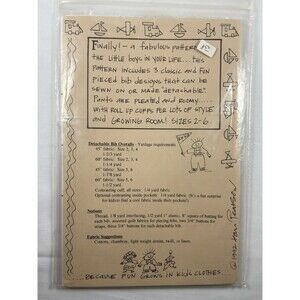 Finally! — a fabulous pattern
the little boys in your life... this
pattern includes 3 classic and fun
pieced bib designs that can be
sewn on or made "detachable".
Pants are pleated and roomy...
with roll up cuffs for lots of style
and growing room! Sizes 2-6.
Detachable Bib Overalls - Yardage requirements
45" fabric: Size 2, 3, 4
1 1/4 yard
60" fabric: Size 2, 3, 4
1 1/8 yard
45" fabric: Size 5, 6
1 1/2 yard
60" fabric: Size 5, 6
1 1/4 yard
Contrasting cuff, all sizes: 1/4 yard fabric
Optional contrasting inside pockets: 1/4 yard fabric (It's a fun surprise
for kids to find a cool fabric inside their pockets!)
Notions
Thread, 1/8 yard interfacing, 1/2 yard 1" elastic, 8" square of batting for
each bib, assorted quilt fabrics for piecing bibs, two 3/4" buttons for
straps, three 3/4" buttons for each detachable bib.
Fabric Suggestions
Cottons, chambray, light weight denim, twill, or linen.
...because fun grows in kids clothes.
© 1992